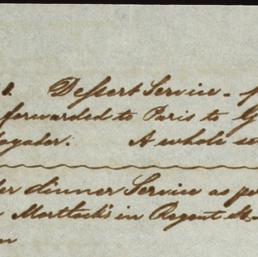 8. Dessert Service - f
forwarded to Paris to G
legater. A whole se
er dinner Service as pe
Mortlock's in Regent St.